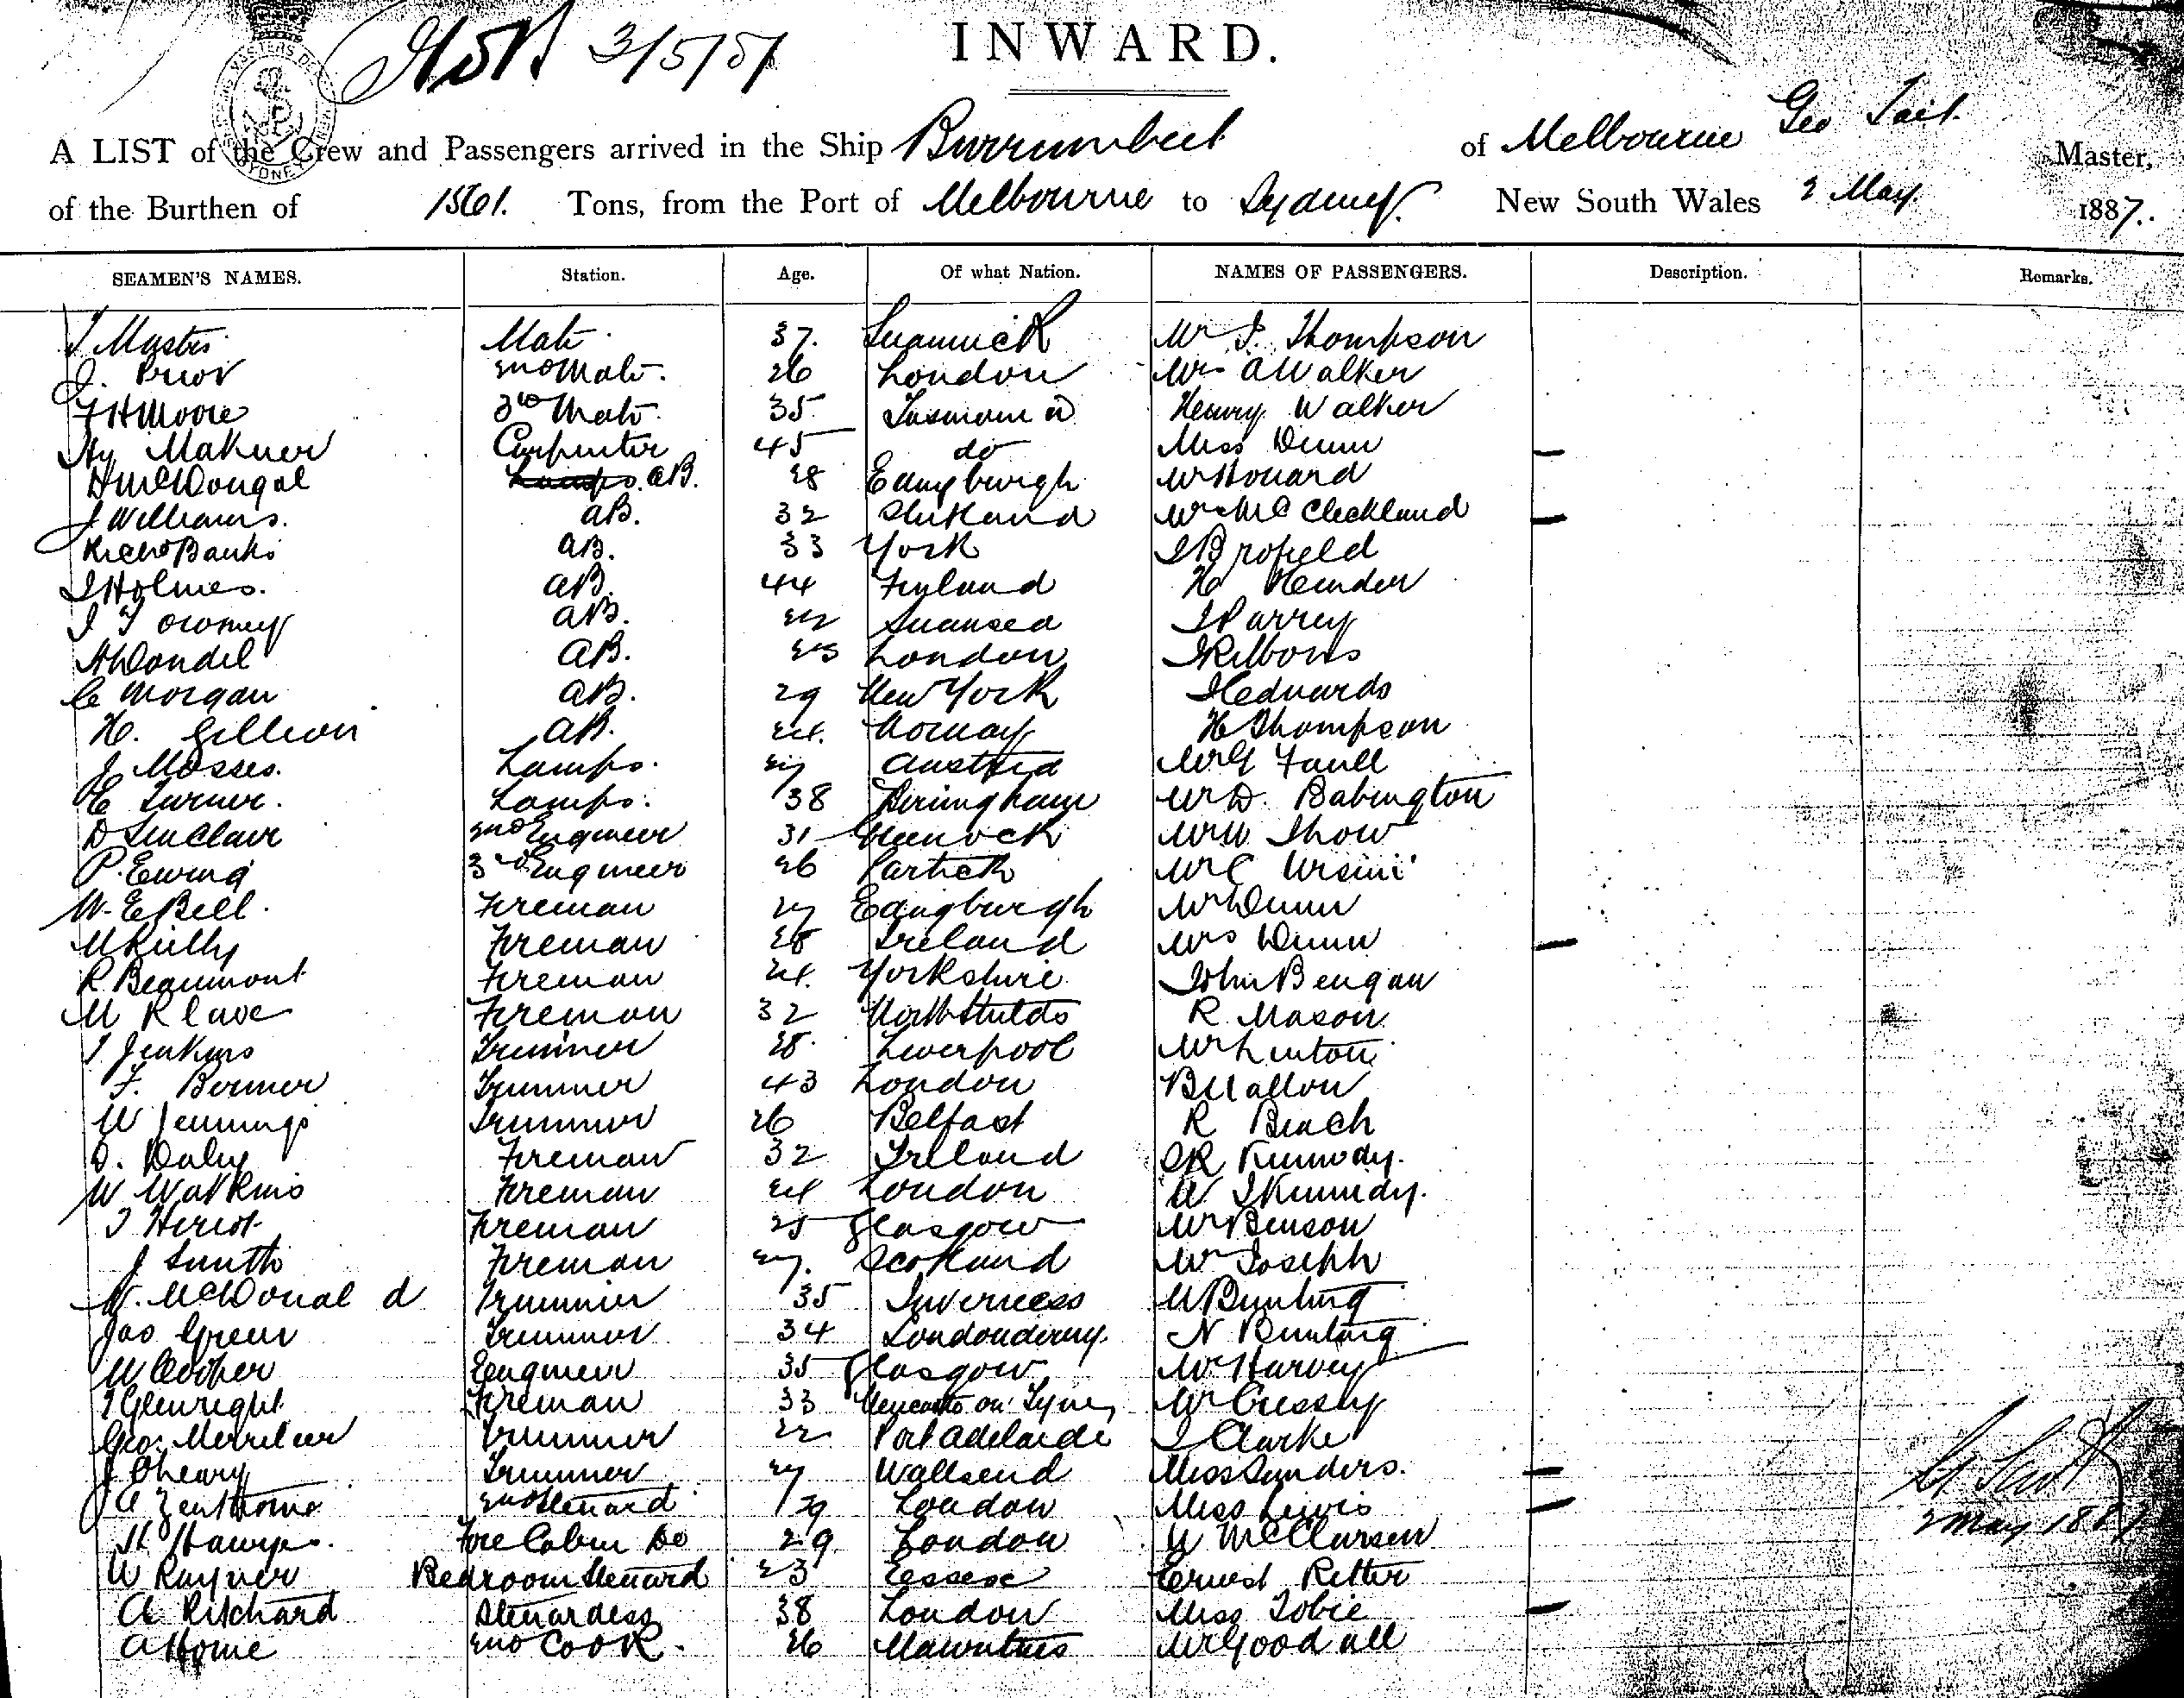 3/5/87
INWARD.
A LIST of the Crew and Passengers arrived in the Ship Burrumbeet of Melbourne Geo Tait Master,
of the Burthen of 1561. Tons, from the Port of Melbourne to Sydney. New South Wales 2 May 1887.
SEAMEN'S NAMES. Station. Age. Of what Nation. NAMES OF PASSENGERS. Description. Remarks.
Mate 37. Mr J. Thompson
J. Prior 2nd Mate. 26 London A Walker
F H Moore 3rd Mate 35 Tasmania Henry Walker
Carpenter 45 do Miss Dunn
H McDougal AB. 28 Edingburgh Mr Howard
J Williams. AB. 32 Mrs McCleckland
Richd Banks AB. 33 York
J Holmes. AB. 44 Finland H
AB. Swansea J Parrey
AB. London
C Morgan AB. 29 New York J Edwards
H. Gillion AB. 24. Norway H Thompson
J Mosses. Lamps. Austria Mr G
E Turner. Lamps. 38 Birmingham Mr D. Babington
D Sinclair 2nd Engineer 31 Greenock Mr W Show
P. Ewing 3rd Engineer 26 Partick Mr C Ursini
W. E Bell. Fireman 27 Edingburgh Mr Dunn
M Reilly Fireman 28 Ireland Mrs Dunn
R Beaumont Fireman 24. Yorkshire John Bengan
Fireman 32 North Shields R. Mason
J Jenkins Trimmer 28. Liverpool Mr Linton
F. Trimmer 43 London
W Jennings Trimmer 26 Belfast R Beach
D. Daley Fireman 32 Ireland Kennedy.
W Watkins Fireman 24 London Kennedy.
J Heriot Fireman 25 Glasgow Mr Benson
J Smith Fireman 27. Scotland Mr Joseph
W. McDonald Trimmer 35 Inverness M Bunting
Jas Green Trimmer 34 Londonderry. N Bunting
W Cooper Engineer 35 Glasgow Mr Harvey
J Glenright Fireman 33 Newcastle on Tyne Mr Cressey
Geo. Trimmer 22 Port Adelaide J Clarke
J Oheary Trimmer 27 Wallsend Miss Sunders.
A 2nd Steward 29 London Miss Lewis
H Fore Cabin Do 29 London
W Rayner Bedroom Steward 23 Essex Ernest Retter
A Ritchard Stewardess 38 London Miss Tobie
A Home 2nd Cook. 26 Mauritius Mr Goodall
2 May 1887